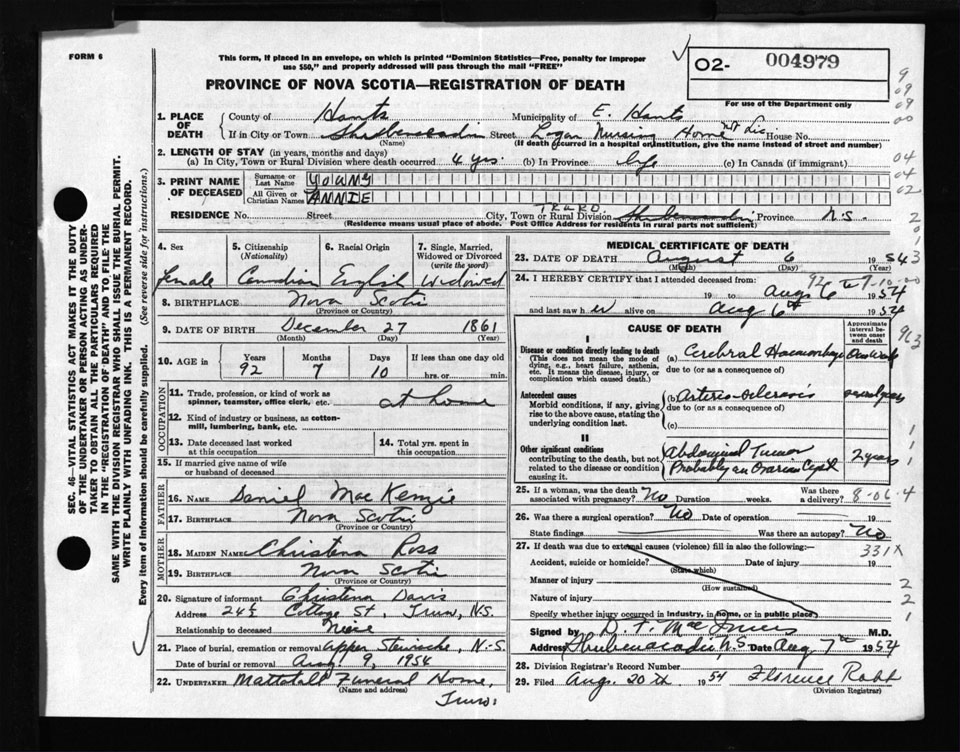 FORM 6
This form, if placed in an envelope, on which is printed "Dominion Statistics—Free, penalty for improper
use $50," and properly addressed will pass through the mail "FREE"
O2- 004979
PROVINCE OF NOVA SCOTIA—REGISTRATION OF DEATH
For use of the Department only
1. PLACE OF DEATH
County of Hants Municipality of E. Hants
If in City or Town Shubenacadie Street Logan Nursing Home House No.
(Name) (If death occurred in a hospital or institution, give the name instead of street and number)
2. LENGTH OF STAY (in years, months and days)
(a) In City, Town or Rural Division where death occurred 4 yrs. (b) In Province life (c) In Canada (if immigrant)
3. PRINT NAME OF DECEASED
Surname or Last Name YOUNG
All Given or Christian Names ANNIE
TRURO
RESIDENCE No. Street City, Town or Rural Division Shubenacadie Province N.S.
(Residence means usual place of abode. Post Office Address for residents in rural parts not sufficient)
4. Sex Female
5. Citizenship (Nationality) Canadian
6. Racial Origin English
7. Single, Married, Widowed or Divorced (write the word) Widowed
8. BIRTHPLACE Nova Scotia
(Province or Country)
9. DATE OF BIRTH December 27 1861
(Month) (Day) (Year)
10. AGE in Years 92 Months 7 Days 10 If less than one day old
hrs. or min.
OCCUPATION
11. Trade, profession, or kind of work as
spinner, teamster, office clerk, etc. at home
12. Kind of industry or business, as cotton-
mill, lumbering, bank, etc.
13. Date deceased last worked
at this occupation
14. Total yrs. spent in
this occupation
15. If married give name of wife
or husband of deceased
FATHER
16. NAME Daniel MacKenzie
17. BIRTHPLACE Nova Scotia
(Province or Country)
MOTHER
18. MAIDEN NAME Christena Ross
19. BIRTHPLACE Nova Scotia
(Province or Country)
20. Signature of informant Christena Davis
Address 24½ College St., Truro, N.S.
Relationship to deceased Niece
21. Place of burial, cremation or removal Upper Stewiacke, N.S.
Date of burial or removal Aug 9, 1954
22. UNDERTAKER Mattatall Funeral Home,
(Name and address)
Truro.
MEDICAL CERTIFICATE OF DEATH
23. DATE OF DEATH August 6 1954
(Month) (Day) (Year)
24. I HEREBY CERTIFY that I attended deceased from:
19 to Aug 6 1954
and last saw her alive on Aug 6th 1954
CAUSE OF DEATH
Approximate interval between onset and death
I
Disease or condition directly leading to death
(This does not mean the mode of
dying, e.g., heart failure, asthenia,
etc. It means the disease, injury, or
complication which caused death.)
(a) Cerebral Haemorrhage One Week
due to (or as a consequence of)
Antecedent causes
Morbid conditions, if any, giving
rise to the above cause, stating the
underlying condition last.
(b) Arterio-sclerosis several years
due to (or as a consequence of)
(c)
II
Other significant conditions
contributing to the death, but not
related to the disease or condition
causing it.
Abdominal Tumor
Probably an Ovarian Cyst 2 years
25. If a woman, was the death
associated with pregnancy? No Duration weeks. Was there
a delivery?
8-06-4
26. Was there a surgical operation? No Date of operation 19
State findings Was there an autopsy? No
27. If death was due to external causes (violence) fill in also the following:—
331X
Accident, suicide or homicide? Date of injury 19
(State which)
Manner of injury
(How sustained)
Nature of injury
Specify whether injury occurred in industry, in home, or in public place
Signed by D. F. MacInnis M.D.
Address Shubenacadie, N.S. Date Aug 7th 1954
28. Division Registrar's Record Number
29. Filed Aug. 20th 1954 Florence Robb
(Division Registrar)
SEC. 46—VITAL STATISTICS ACT MAKES IT THE DUTY
OF THE UNDERTAKER OR PERSON ACTING AS UNDER-
TAKER TO OBTAIN ALL THE PARTICULARS REQUIRED
IN THE "REGISTRATION OF DEATH" AND TO FILE THE
SAME WITH THE DIVISION REGISTRAR WHO SHALL ISSUE THE BURIAL PERMIT.
WRITE PLAINLY WITH UNFADING INK. THIS IS A PERMANENT RECORD.
Every item of information should be carefully supplied. (See reverse side for instructions.)